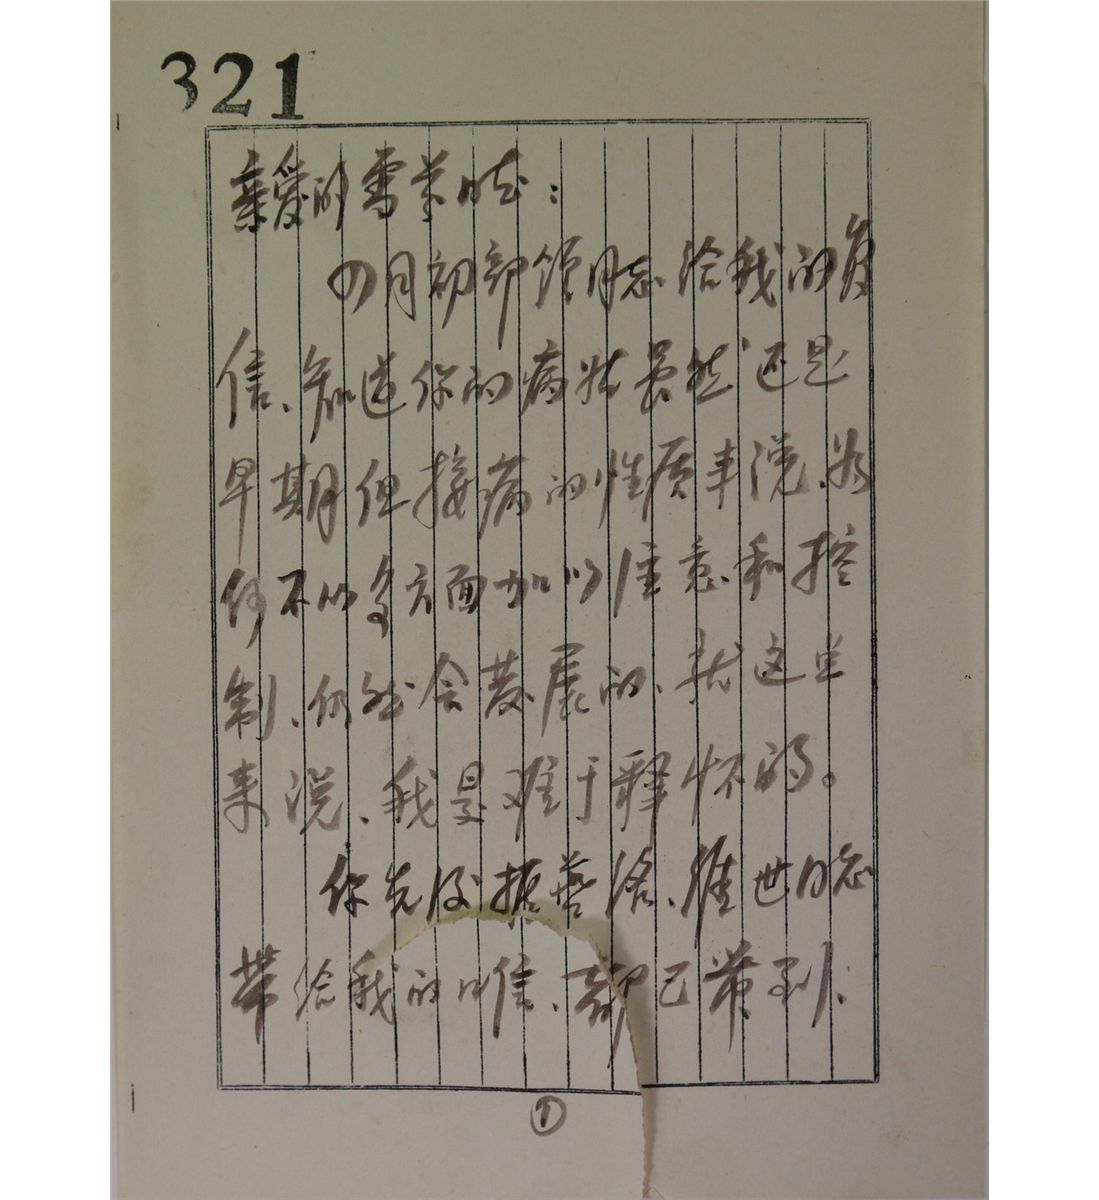 321
亲爱的雪蕾同志:
四月初部领同志给我的复
信、知道你的病状虽然还是
早期但按病的性质来说、如
何不以多方面加以注意和控
制、仍然会发展的、就这点
来说、我是难于释怀的。
你先后振洛、维世同志
带给我的口信、都已带到、
①